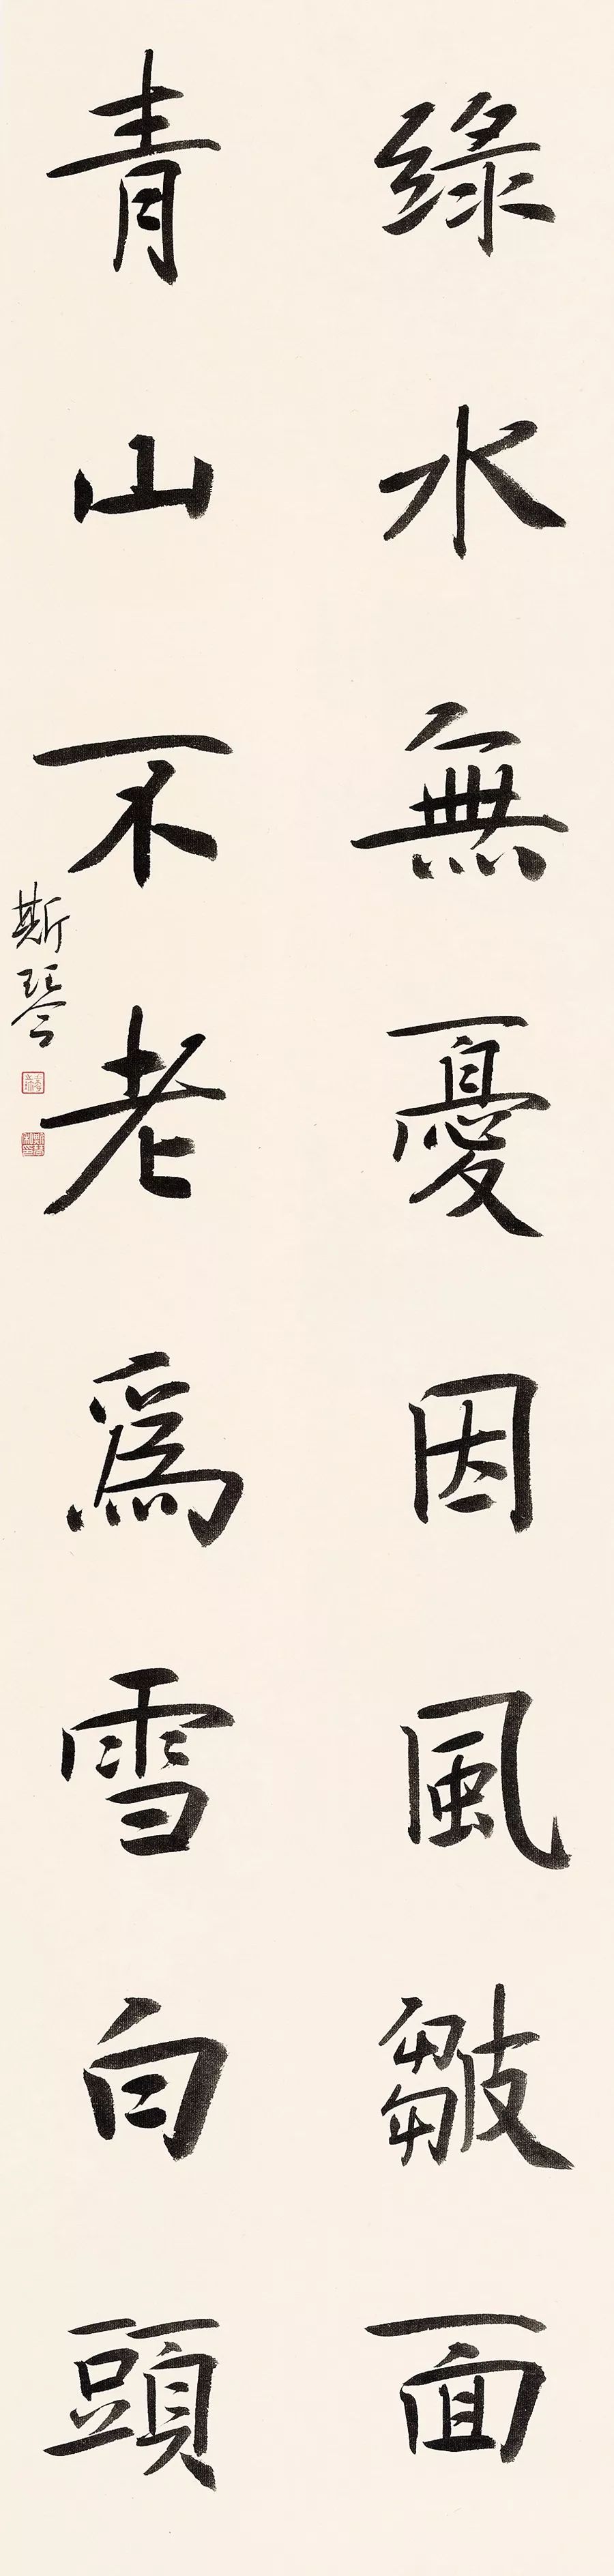 綠水無憂因風皺面
青山不老為雪白頭
斯琴